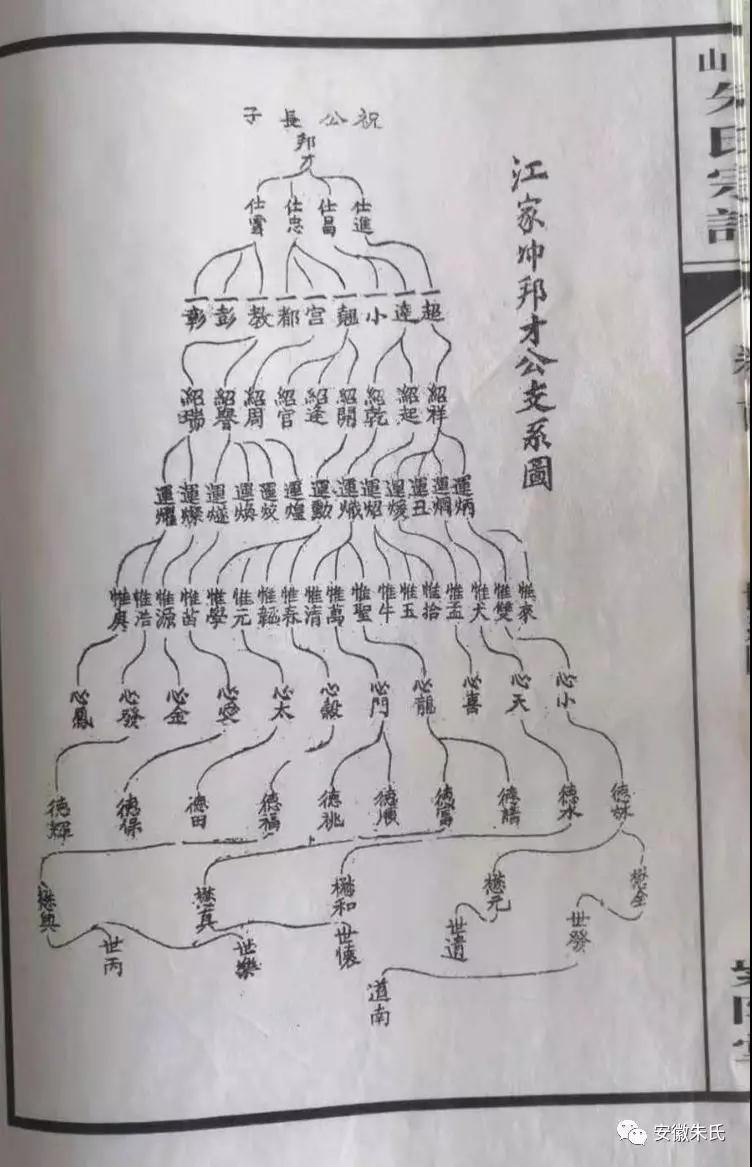 江家冲邦才公支系圖
祝公長子
邦才
仕進 仕昌 仕忠 仕雲
一超 一逵 一小 一翹 一宫 一都 一教 一彭 一彰
紹祥 紹起 紹乾 紹開 紹逢 紹官 紹周 紹譽 紹瑞
運炳 運烱 運丑 運煖 運炤 運熾 運勳 運煌 運炆 運煥 運燧 運燦 運耀
惟來 惟雙 惟犬 惟孟 惟拾 惟五 惟牛 惟聖 惟萬 惟清 惟春 惟韜 惟元 惟學 惟苗 惟源 惟浩 惟庚
心小 心天 心喜 心龍 心門 心穀 心太 心金 心發 心鳳
德林 德水 德富 德順 德桃 德福 德田 德保 德輝
懋金 懋元 懋和 懋真 懋興
世發 世遺 世懷 世樂 世丙
道南
山 朱氏宗譜
安徽朱氏